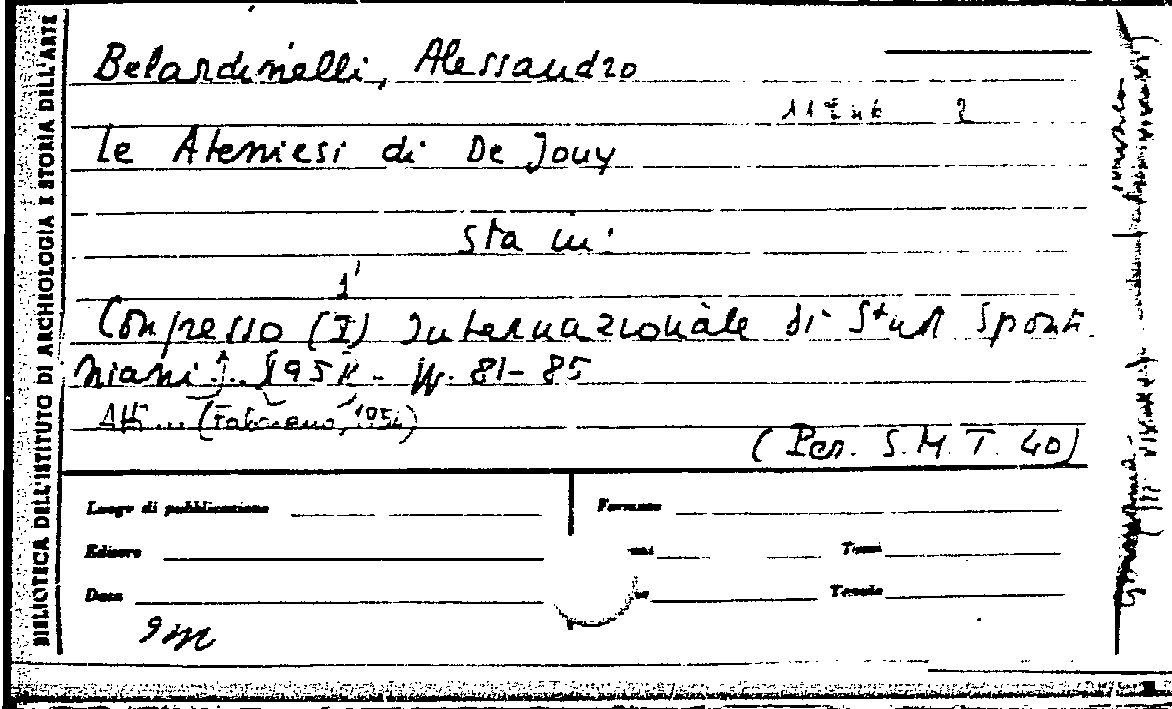 BIBLIOTECA DELL'ISTITUTO DI ARCHEOLOGIA E STORIA DELL'ARTE
Belardinelli, Alessandro
Le Ateniesi di De Jouy
sta in:
Congresso (I) Internazionale di Studi Sponti
niani
pp. 81-85
Atti... (Fabriano, 1954)
(Per. S.M.T. 40)
Luogo di pubblicazione
Formato
Editore
Tomi
Data
Tavole